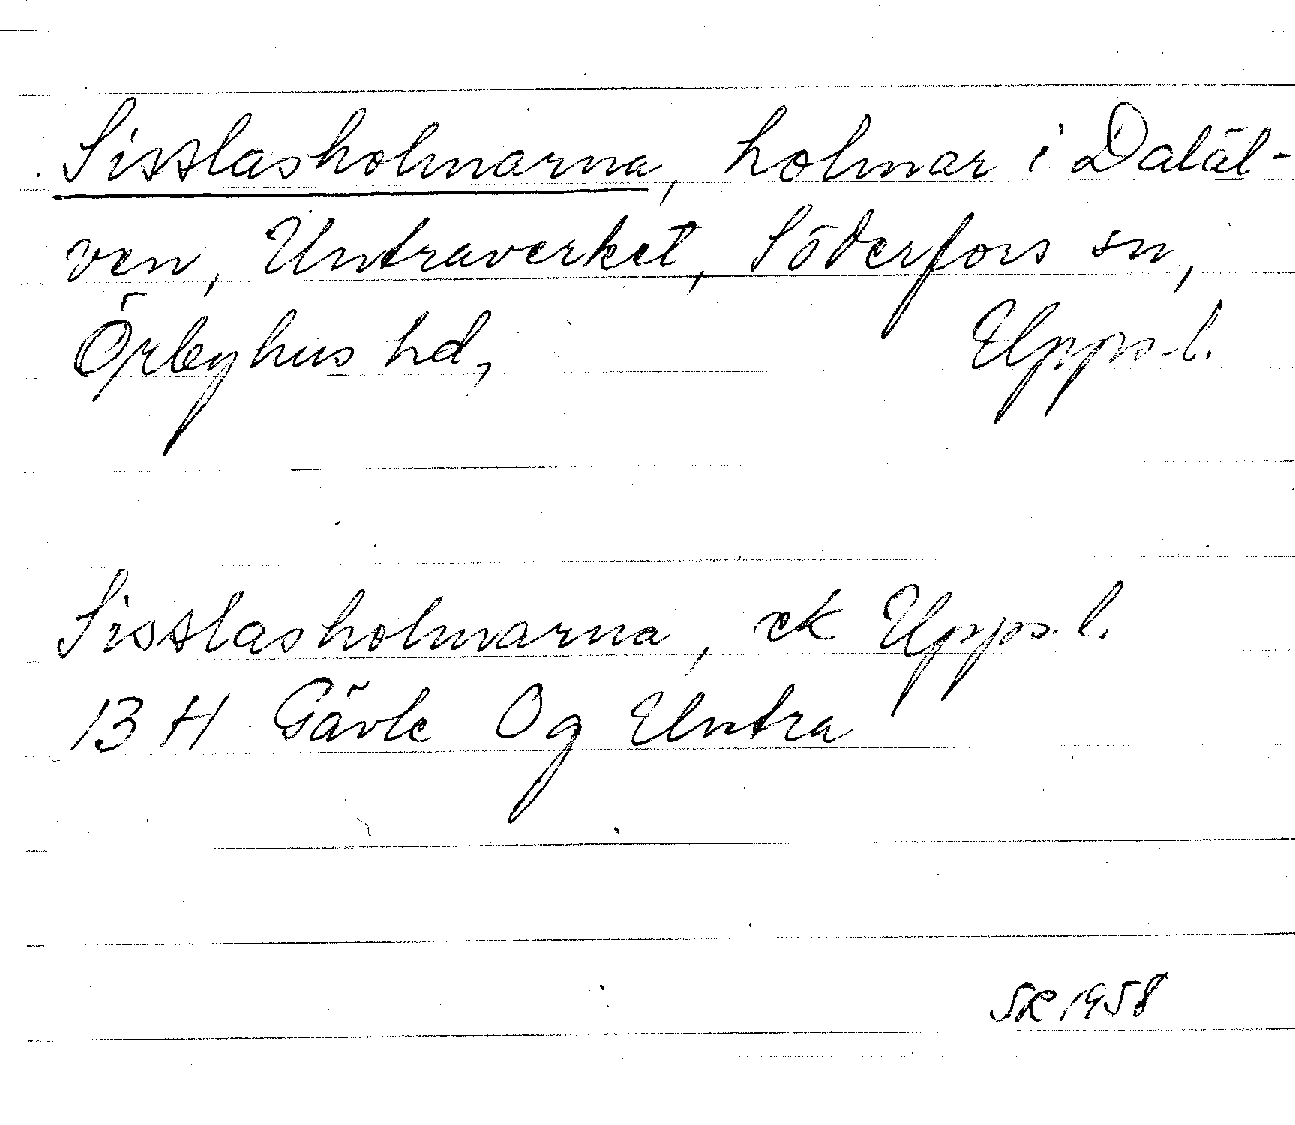 Sisslasholmarna, holmar i Daläl-
ven, Untraverket, Söderfors sn,
Örbyhus hd, Upps. l.
Sisslasholmarna, ek Upps. l.
13 H Gävle Og Untra
SR 1958